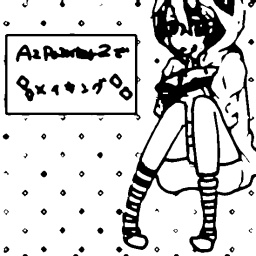 AzPainter2で
◇メイキング◇